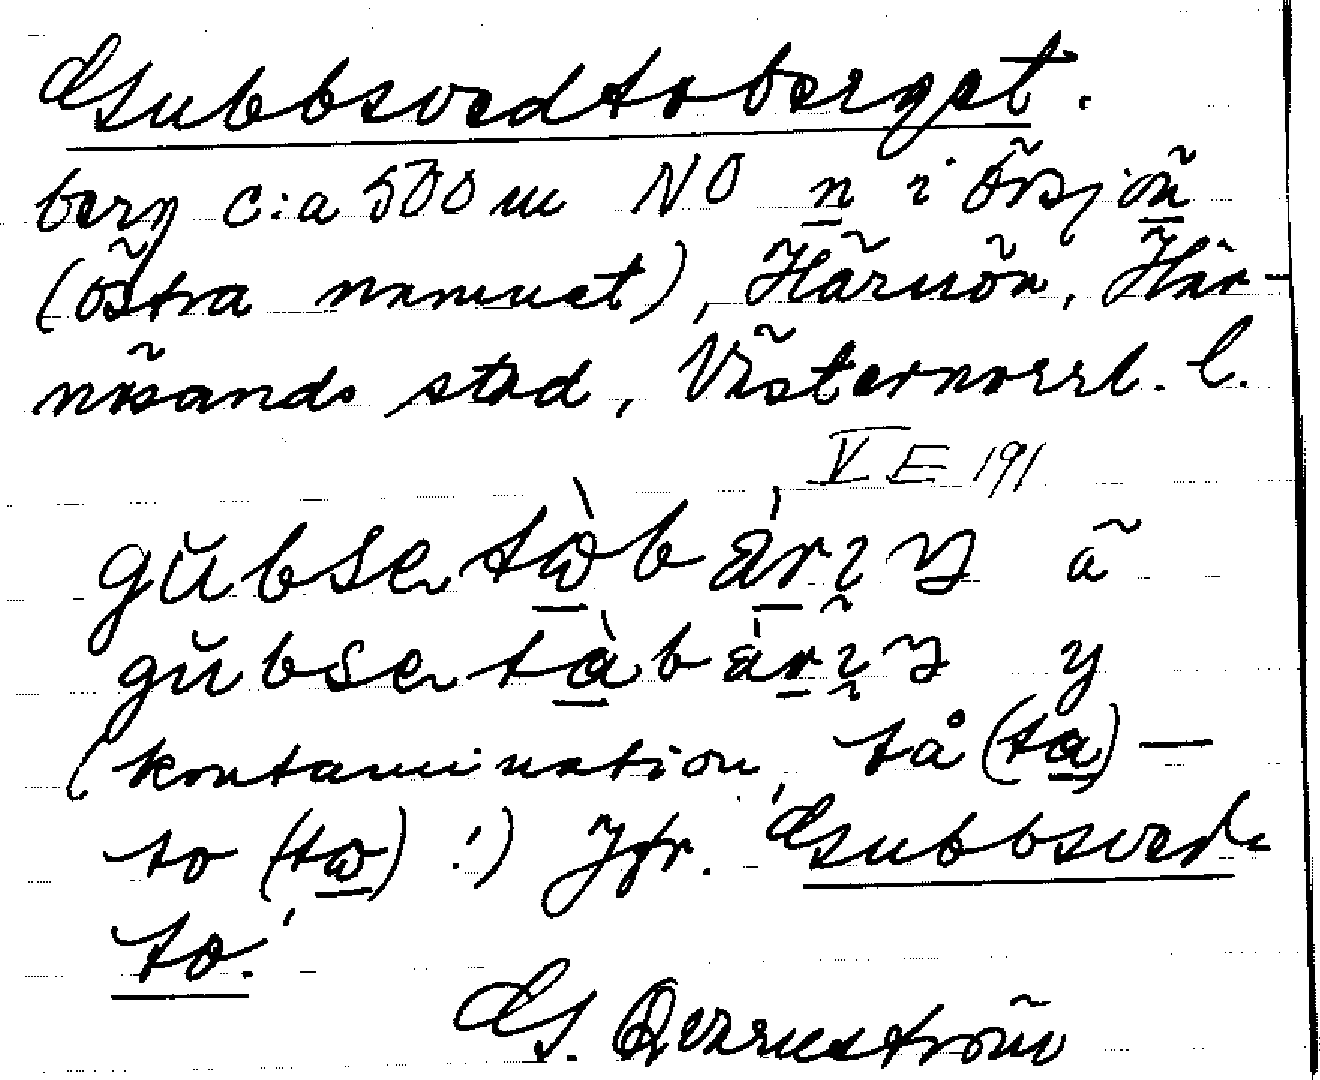 Gubbsvedtoberget.
berg c:a 500 m NO n i Örsjön
(östra namnet), Härnön, Här-
nösands stad, Västernorrl. l.
V E 191
ä
y
(kontamination tå (ta) —
to (tω) !) Jfr. 'Gubbsved-
to.'
G. Qvarnström